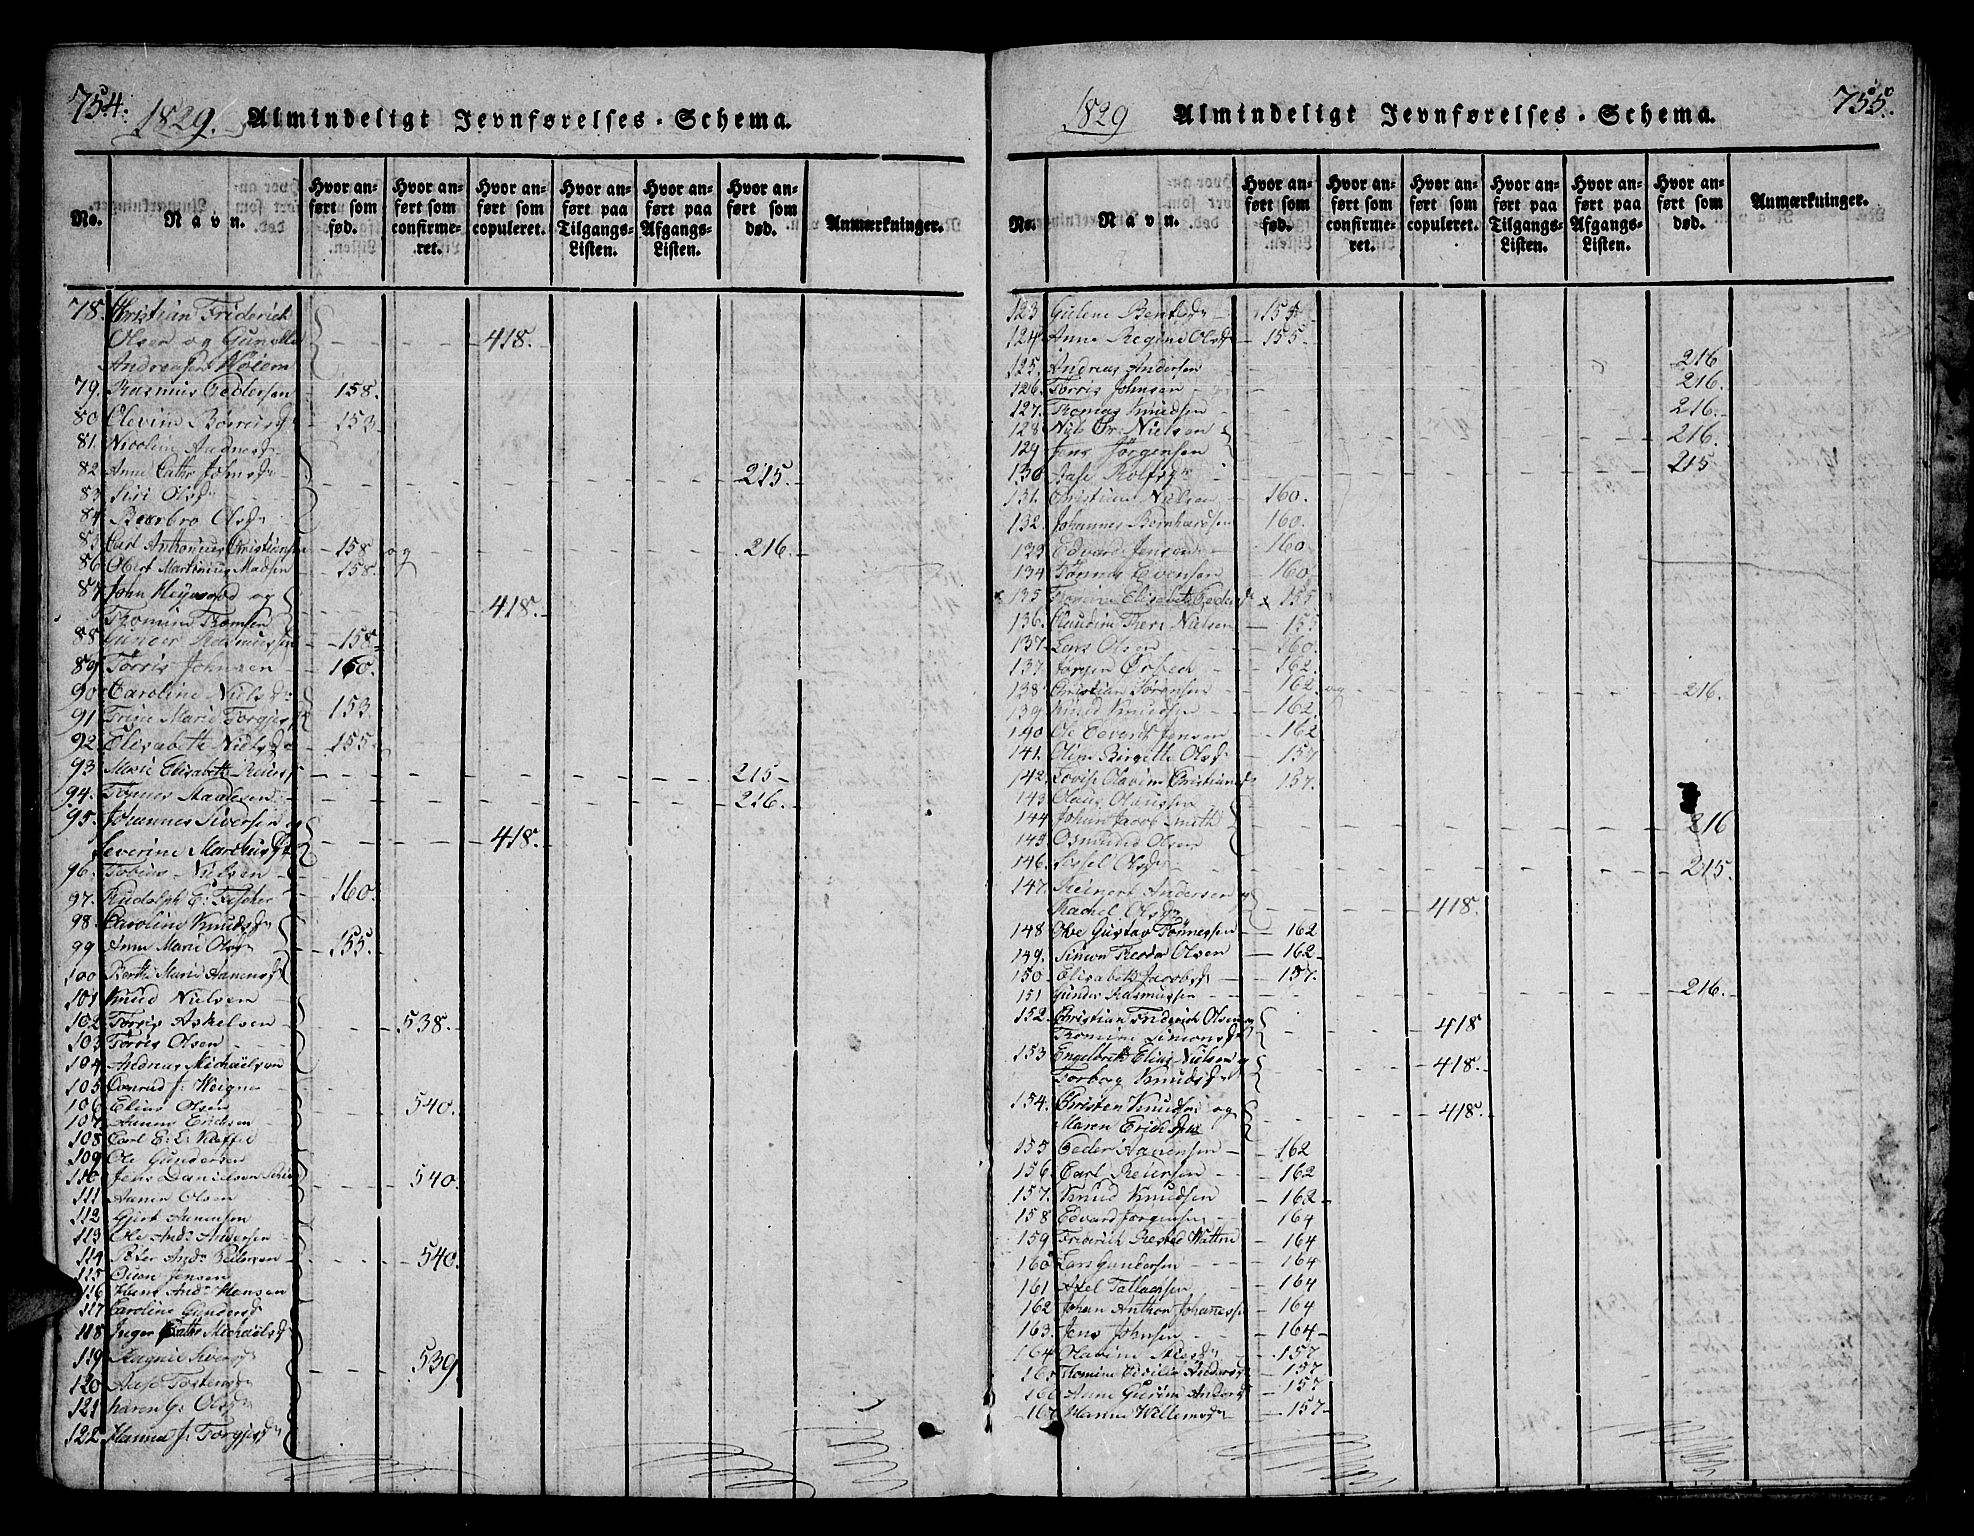 754.
1829. Almindeligt Jevnførelses-Schema.
No. Navn. Hvor anført som fød. Hvor anført som confirmeret. Hvor anført som copuleret. Hvor anført paa Tilgangs-Listen. Hvor anført paa Afgangs-Listen. Hvor anført som død. Anmærkninger.
78. Christian Friderich
Olsen og Gunille 418.
Andreasen
79. Rasmus Pedersen 158.
80 Olevine 153.
81. Nicoline
82. Anne Cathr Johnsd
83. Siri Olsd 215.
84. Baarbro Olsd
85 Carl Anthonius Christiansen 158 og 216.
86. Obert Martinius Madsen 158.
87. John og 418.
Thomine Thomsen
88 Gunder Rasmussen 158
89. Torris Johnsen 160.
90. Caroline Nielsd 153
91 Trine Marie Torgjersd
92. Elisabeth Nielsd 155
93 Marie Elisabeth Reiersd 215
94. Tønnes 216.
95. Johannes Siversen og 418.
Severine
96. Tobias Nielsen
97. Rudolph E: Fischer 160.
98. Caroline Knudsd
99 Anne Marie Olsd 155.
100 Berthe Marie Aanensd
101 Knud Nielsen
102. Torris Askelsen 538.
103 Torris Olsen
104 Andreas Michaëlsen
105 Conrad J:
106 Elias Olsen 540.
107 Aanen Ericksen
108 Carl E: L:
109 Ole Gundersen
110 Jens Danielsen 540.
111 Aanen Olsen
112 Gjert Aanensen
113 Ole Ands Andersen
114 Peter Ands Pedersen 540.
115 Jensen
116 Ands Hansen
117 Caroline Gundersd
118 Inger Cathr Michaëlsd
119 Ragnild Siversd 539
120 Aase Torstensd
121 Karen G: Olsd
122 Hanna J: Torgjersd
1829 Almindeligt Jevnførelses-Schema. 755.
No. Navn. Hvor anført som fød. Hvor anført som confirmeret. Hvor anført som copuleret. Hvor anført paa Tilgangs-Listen. Hvor anført paa Afgangs-Listen. Hvor anført som død. Anmærkninger.
123 Gulene Bentsd 155
124 Anne Regine Olsd 155.
125. Andreas Andersen 216
126. Torris Johnsen 216.
127. Thomas Knudsen 216.
128 Niels Chr: Nielsen 216.
129 Jens Jörgensen
130 Aase Rolfsd 215
131. Christian Nielsen 160.
132. Johannes Bernhardsen 160.
133 Edvard Jensen 160
134 Tönnes Evensen 160
135 Elisabeth Pedersd x 155
136. Claudine Nielsen 155
137. Lars Olsen 160.
137 Jørgen 162.
138 Christian Sörensen 162 og 216.
139 Knud Knudsen 162
140 Ole Jensen 162
141. Oline Birgitte Olsd 157
142. Lovise Olavine Christiansd 157.
143 Olaus Olaussen
144 Johan Jacob Smith 216
145 Osmund Olsen
146. Sissel Olsd 215.
147. Reinert Andersen og 418.
Rachel Olsd
148 Ole Gustav Tönnessen 162
149. Simon Theodor Olsen 162
150 Elisabeth Jacobsd 157.
151 Gunder Rasmussen 216.
152. Christian Friderich Olsen og 418
Thomine Simonsd
153 Engelbreth Elias Nielsen og 418.
Torborg Knudsd
154. Christen Knudsen og 418.
Maren
155 Peder Aanensen 162
156. Carl Reiersen 162
157. Knud Knudsen 162
158 Edvard Jörgensen 164
159 Friderich 164
160 Lars Gundersen 164
161 Axel Tallaksen 164
162 Johan Anthon Johannessen 164
163. Jens Johnsen 164
164 Olavine 157.
165 Thomine 157
166 Anne Andersd 157
167 Hanne Willemsd 157